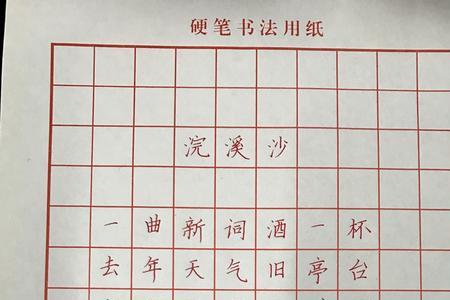 硬笔书法用纸
浣溪沙
一曲新词酒一杯
去年天气旧亭台